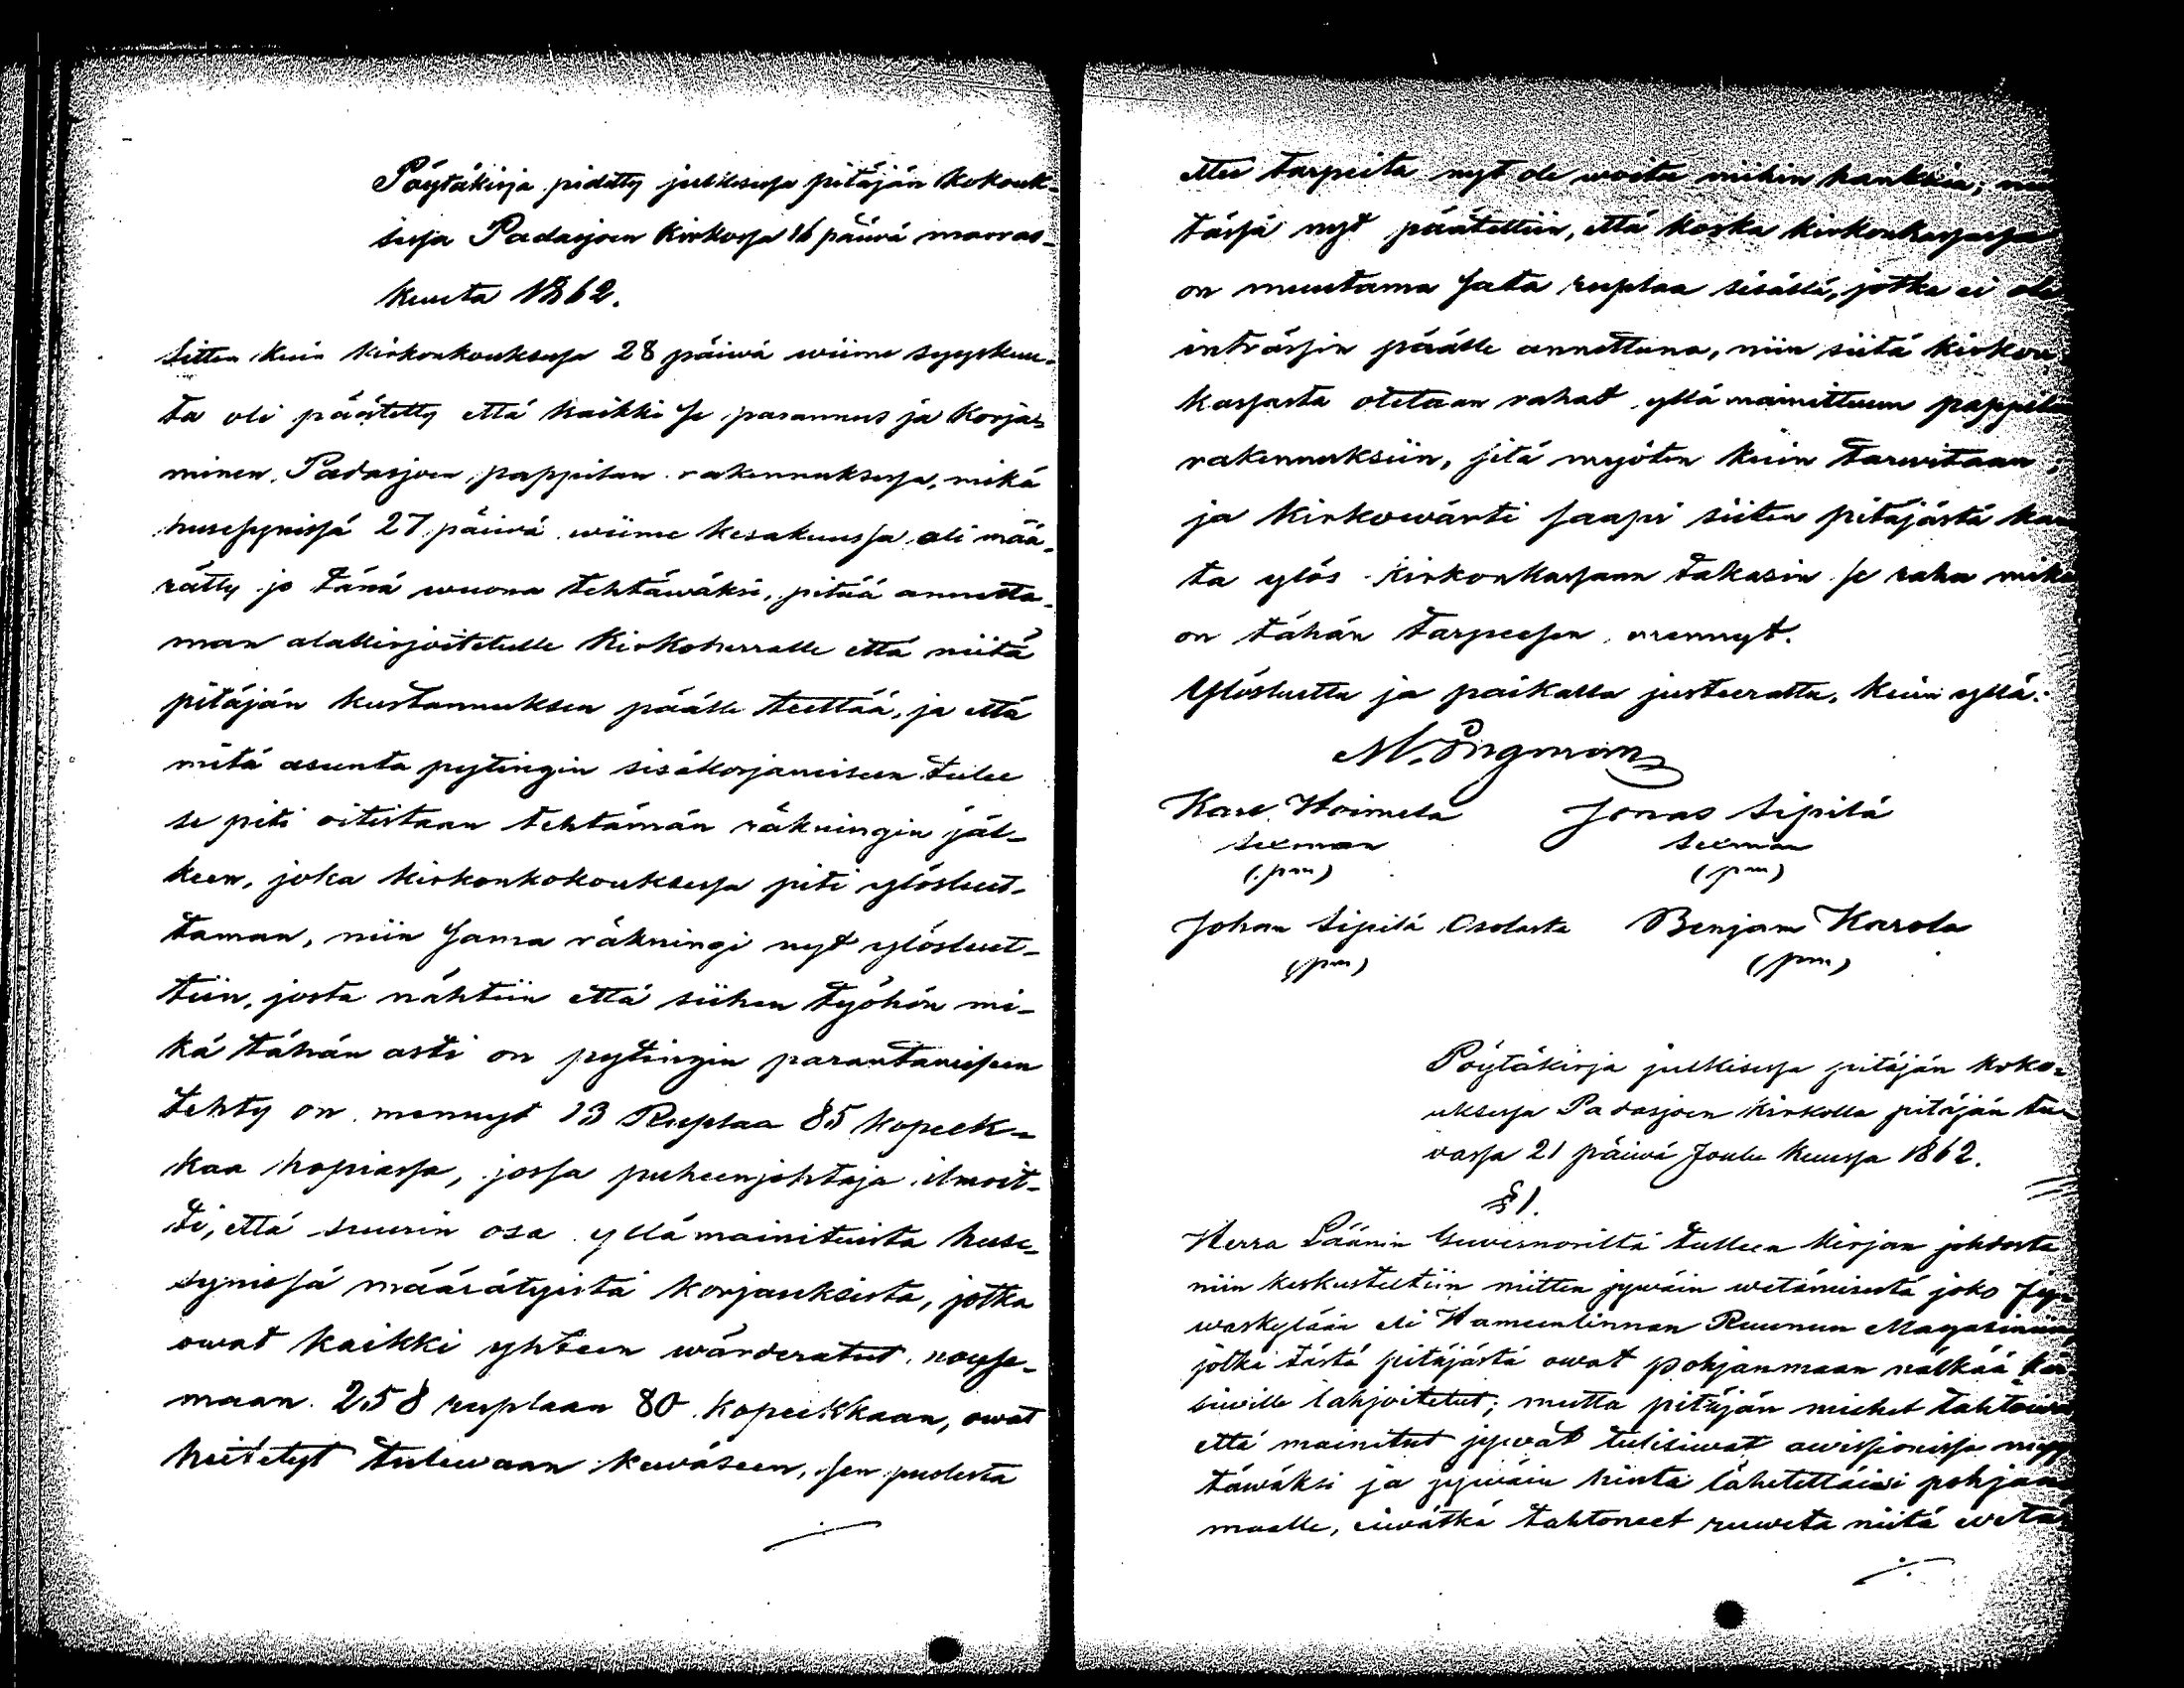 Pöytäkirja pidetty julkisessa pitäjän kokouk-
sessa Padasjoen Kirkossa 16 päivä marras-
kuuta 1862.
Sitten kuin kirkonkouksessa 28 päiwä wiime syyskuu-
ta oli päätetty että kaikki se parannus ja korja-
minen Padasjoen pappilan rakennuksessa, mikä
husesynissä 27 päiwä wiime kesäkuussa oli mää-
rätty jo tänä wuona tehtäwäksi, pitää annetta-
man alakirjoitetulle Kirkoherralle että niitä
pitäjän kustannuksen päälle teettää, ja että
mitä asunta pytingin sisäkorjaamiseen tulee
se piti oitistaan tehtämän räkningin jäl-
keen, joka kirkonkokouksessa piti ylösluet-
taman, niin sama räkningi nyt ylösluet-
tiin, josta nähtiin että siihen työhön mi-
kä tähän asti on pytingin parantamiseen
tehty on mennyt 13 Ruplaa 85 kopeek-
kaa hopiassa, jossa puheenjohtaja ilmoit-
ti, että suurin osa yllämainituista huse-
synissä määrätyistä korjauksista, jotka
owat kaikki yhteen wärderatut nouse-
maan 258 ruplaan 80 kopeekkaan, owat
heitetyt tulewaan kewäseen, sen puolesta
ettei tarpeita nyt ole woitu mihin hankkia;
tässä nyt päätettiin, että koska kirkonkassassa
on muutama sata ruplaa sisällä, jotka ei ole
inträssin päälle annettuna, niin siitä kirkon
kassasta otetaan rahat yllämainittuun pappilan
rakennuksiin, sitä myöten kuin tarwitaan;
ja kirkowärti saapi siiten pitäjästä kan
ta ylös kirkonkassaan takasin se raha mikä
on tähän tarpeesen mennyt.
Ylösluettu ja paikalla justeerattu, kuin yllä:
M. Ingman
Karl Hoimela Jonas Sipilä
Sexman Sexman
(pm) (pm)
Johan Sipilä Osolasta Benjam Karola
(pm) (pm)
Pöytäkirja julkisessa pitäjän koko-
uksessa Padasjoen kirkolla pitäjän tu-
vassa 21 päiwä Joulu kuussa 1862.
§ 1.
Herra Läänin Guvernöriltä tulleen kirjan johdosta
niin keskusteltiin niitten jywäin wetämisestä joko Jy-
waskylään eli Hämeenlinnan Ruunun Magasiniin
jotka tästä pitäjästä owat pohjanmaan nälkää kär
siwille lahjoitetut; mutta pitäjän miehet tahtoiwa
että mainitut jywät tulisiwat auksionissa myy
täwäksi ja jywäin hinta lähetettäisi pohjan
maalle, eiwätkä tahtoneet ruweta niitä wetä-